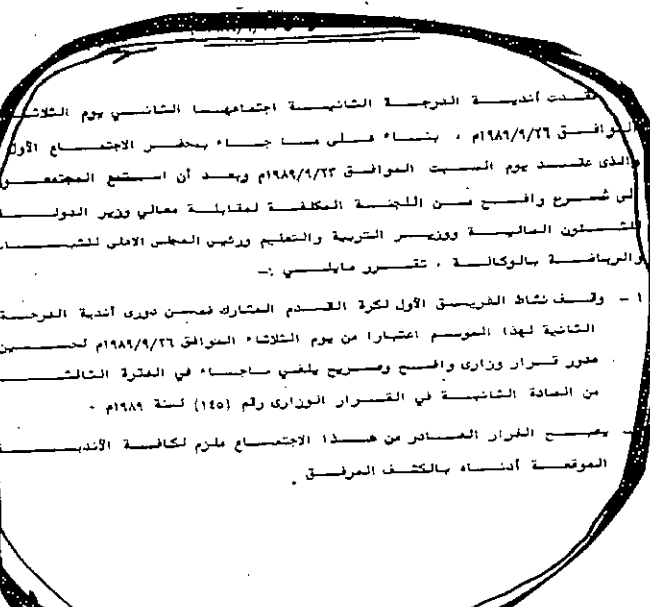 عقدت أندية الدرجة الثانية اجتماعهما الثاني يوم الثلاثاء
الموافق ١٩٨٩/٩/٢٦م ، بناء على ما جاء بمحضر الاجتماع الأول
والذى عقد يوم السبت الموافق ١٩٨٩/٩/٢٣م وبعد أن استمع المجتمعو
الى شرح وافى من اللجنة المكلفة لمقابلة معالي وزير الدولة
للشئون المالية ووزير التربية والتعليم ورئيس المجلس الاعلى للشباب
والرياضة بالوكالة ، تقرر مايلي :-
١ - وقف نشاط الفريق الأول لكرة القدم المشارك ضمن دورى أندية الدرجة
الثانية لهذا الموسم اعتبارا من يوم الثلاثاء الموافق ١٩٨٩/٩/٢٦م لحين
صدور قرار وزارى واضح وصريح يلغي ماجاء في الفقرة الثالثة
من المادة الثانية في القرار الوزارى رقم (١٤٥) لسنة ١٩٨٩م .
- يصبح القرار الصادر من هذا الاجتماع ملزم لكافة الأندية
الموقعة أدناه بالكشف المرفق .